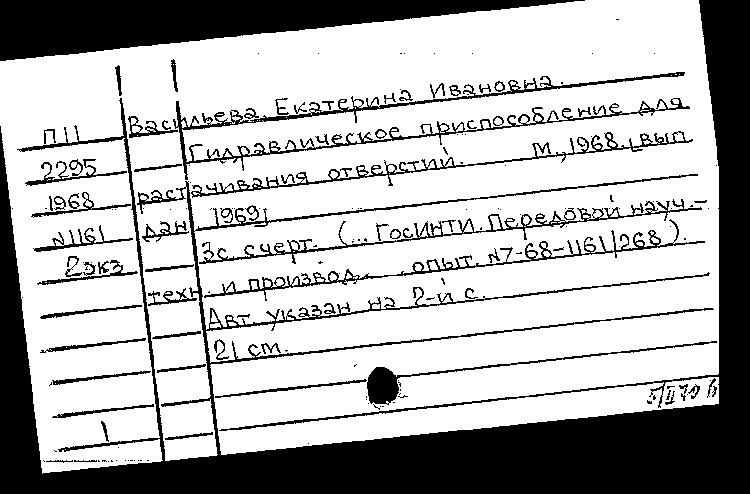 П11 Васильева Екатерина Ивановна.
2295 Гидравлическое приспособление для
1968 растачивания отверстий. М, 1968 [вып
N1161 дан 1969]
2экз 3с. с черт. (... ГОСИНТИ. Передовой науч.-
техн. и производ. опыт. N7-68-1161/268).
Авт. указан на 2-й с.
21 см.
1
5/II 70